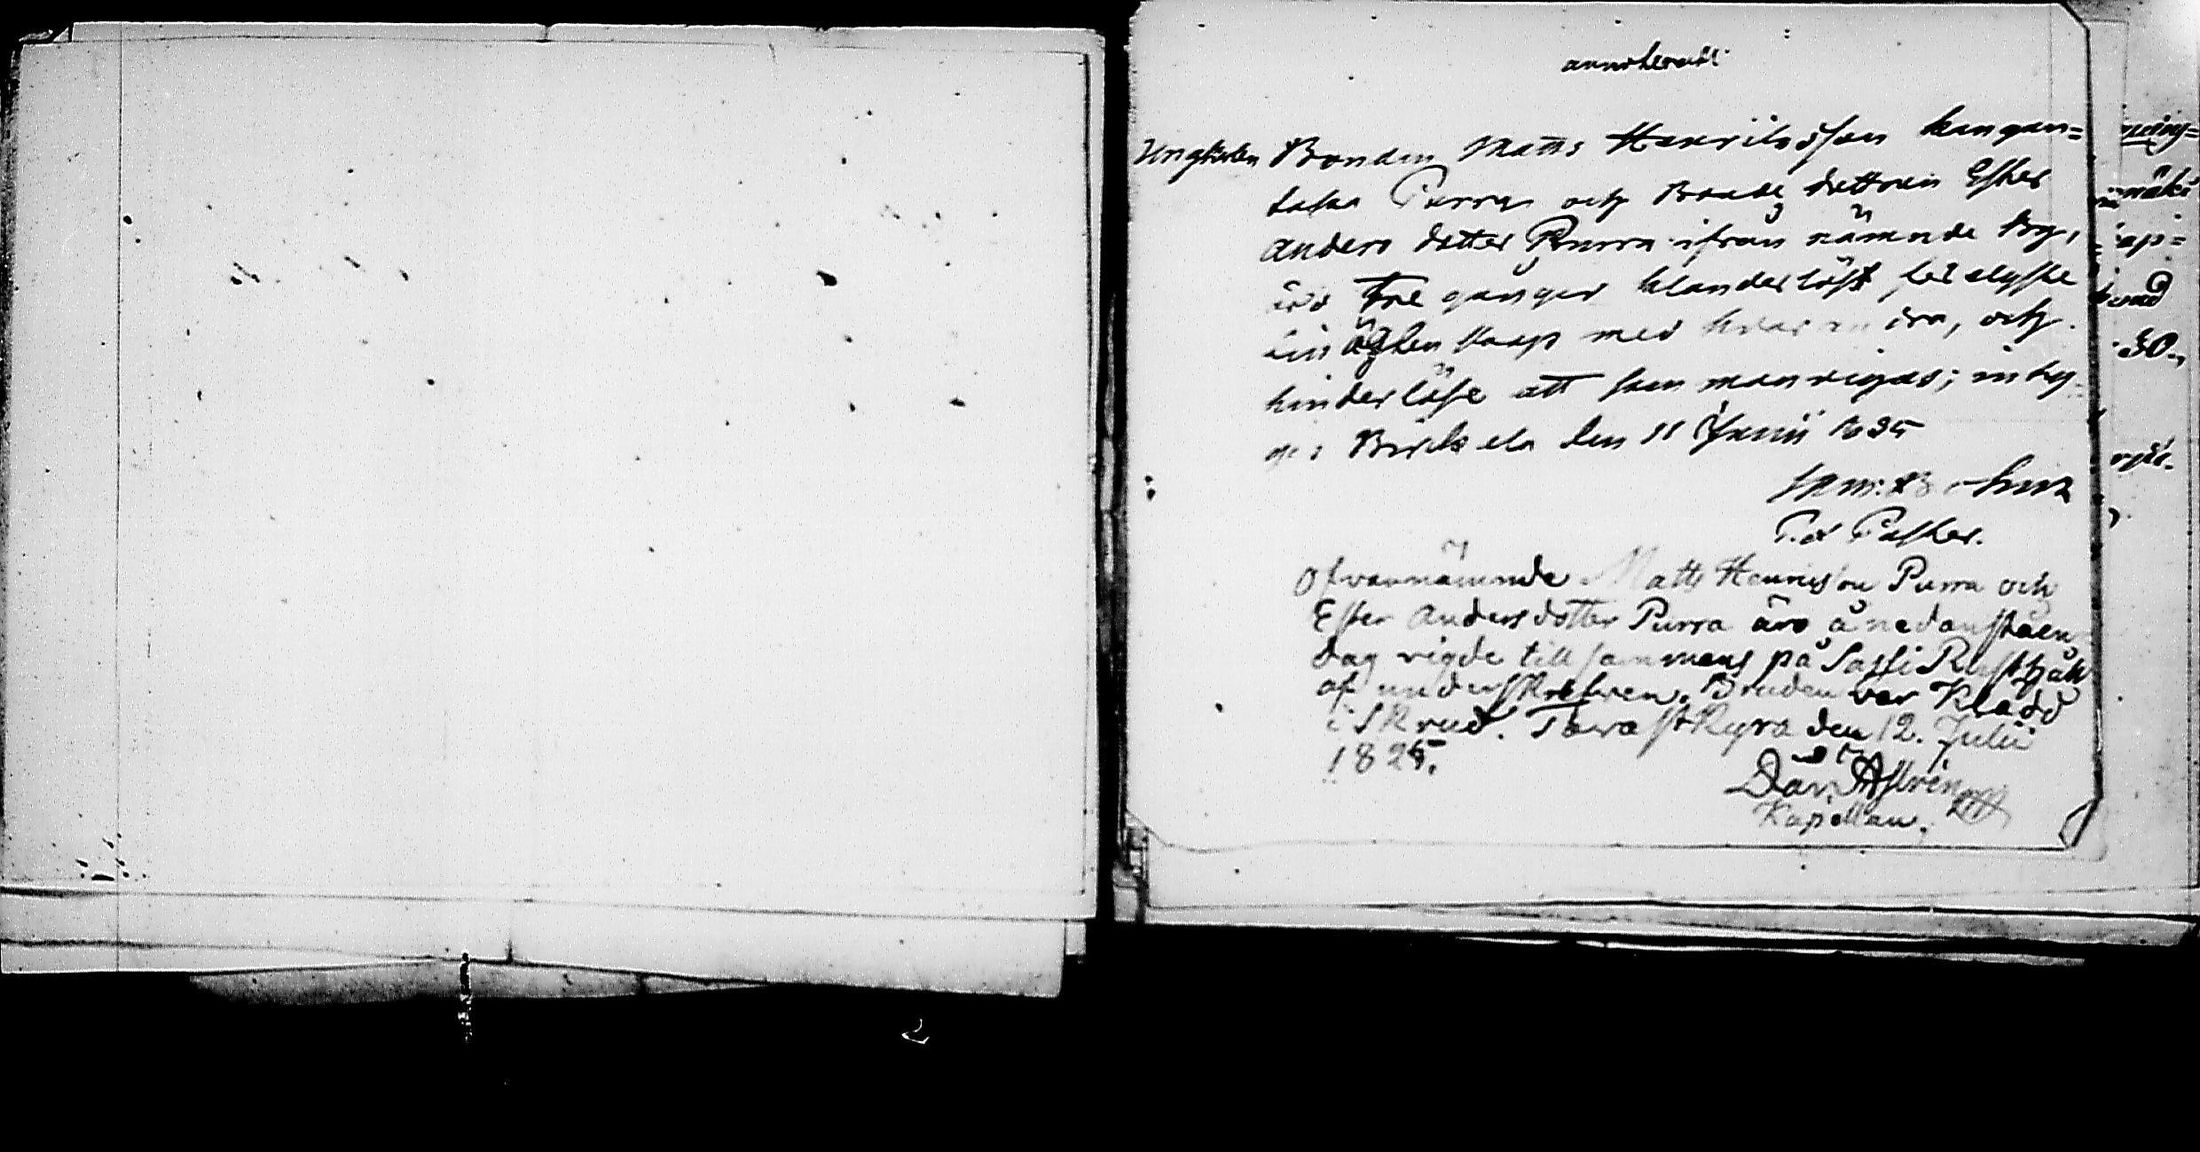 annoterade
Ungkarlen Bonden Matts Henriksson kangan=
taka Purra och Bonde dottren Ester
Anders dotter Purra ifrån nämnde by,
äro Tre gånger klanderlöst förelyste
till ägtenskap med hvarandra, och
hinderlöse att samman vigas; intygas
Birkala den 11 Junii 1825
T.f. Pastor.
Ofvannämnde Matts Henriksson Purra och
Ester Andersdotter Purra äro å nedanstående
dag vigde tillsammans på Sassi Rusthåll
af underskrefven. Bruden var Klädd
i Skrud. Tavastkyro den 12. Julii
1825.
Dav. Aslrén
Kapellan.
näki
rad
30.